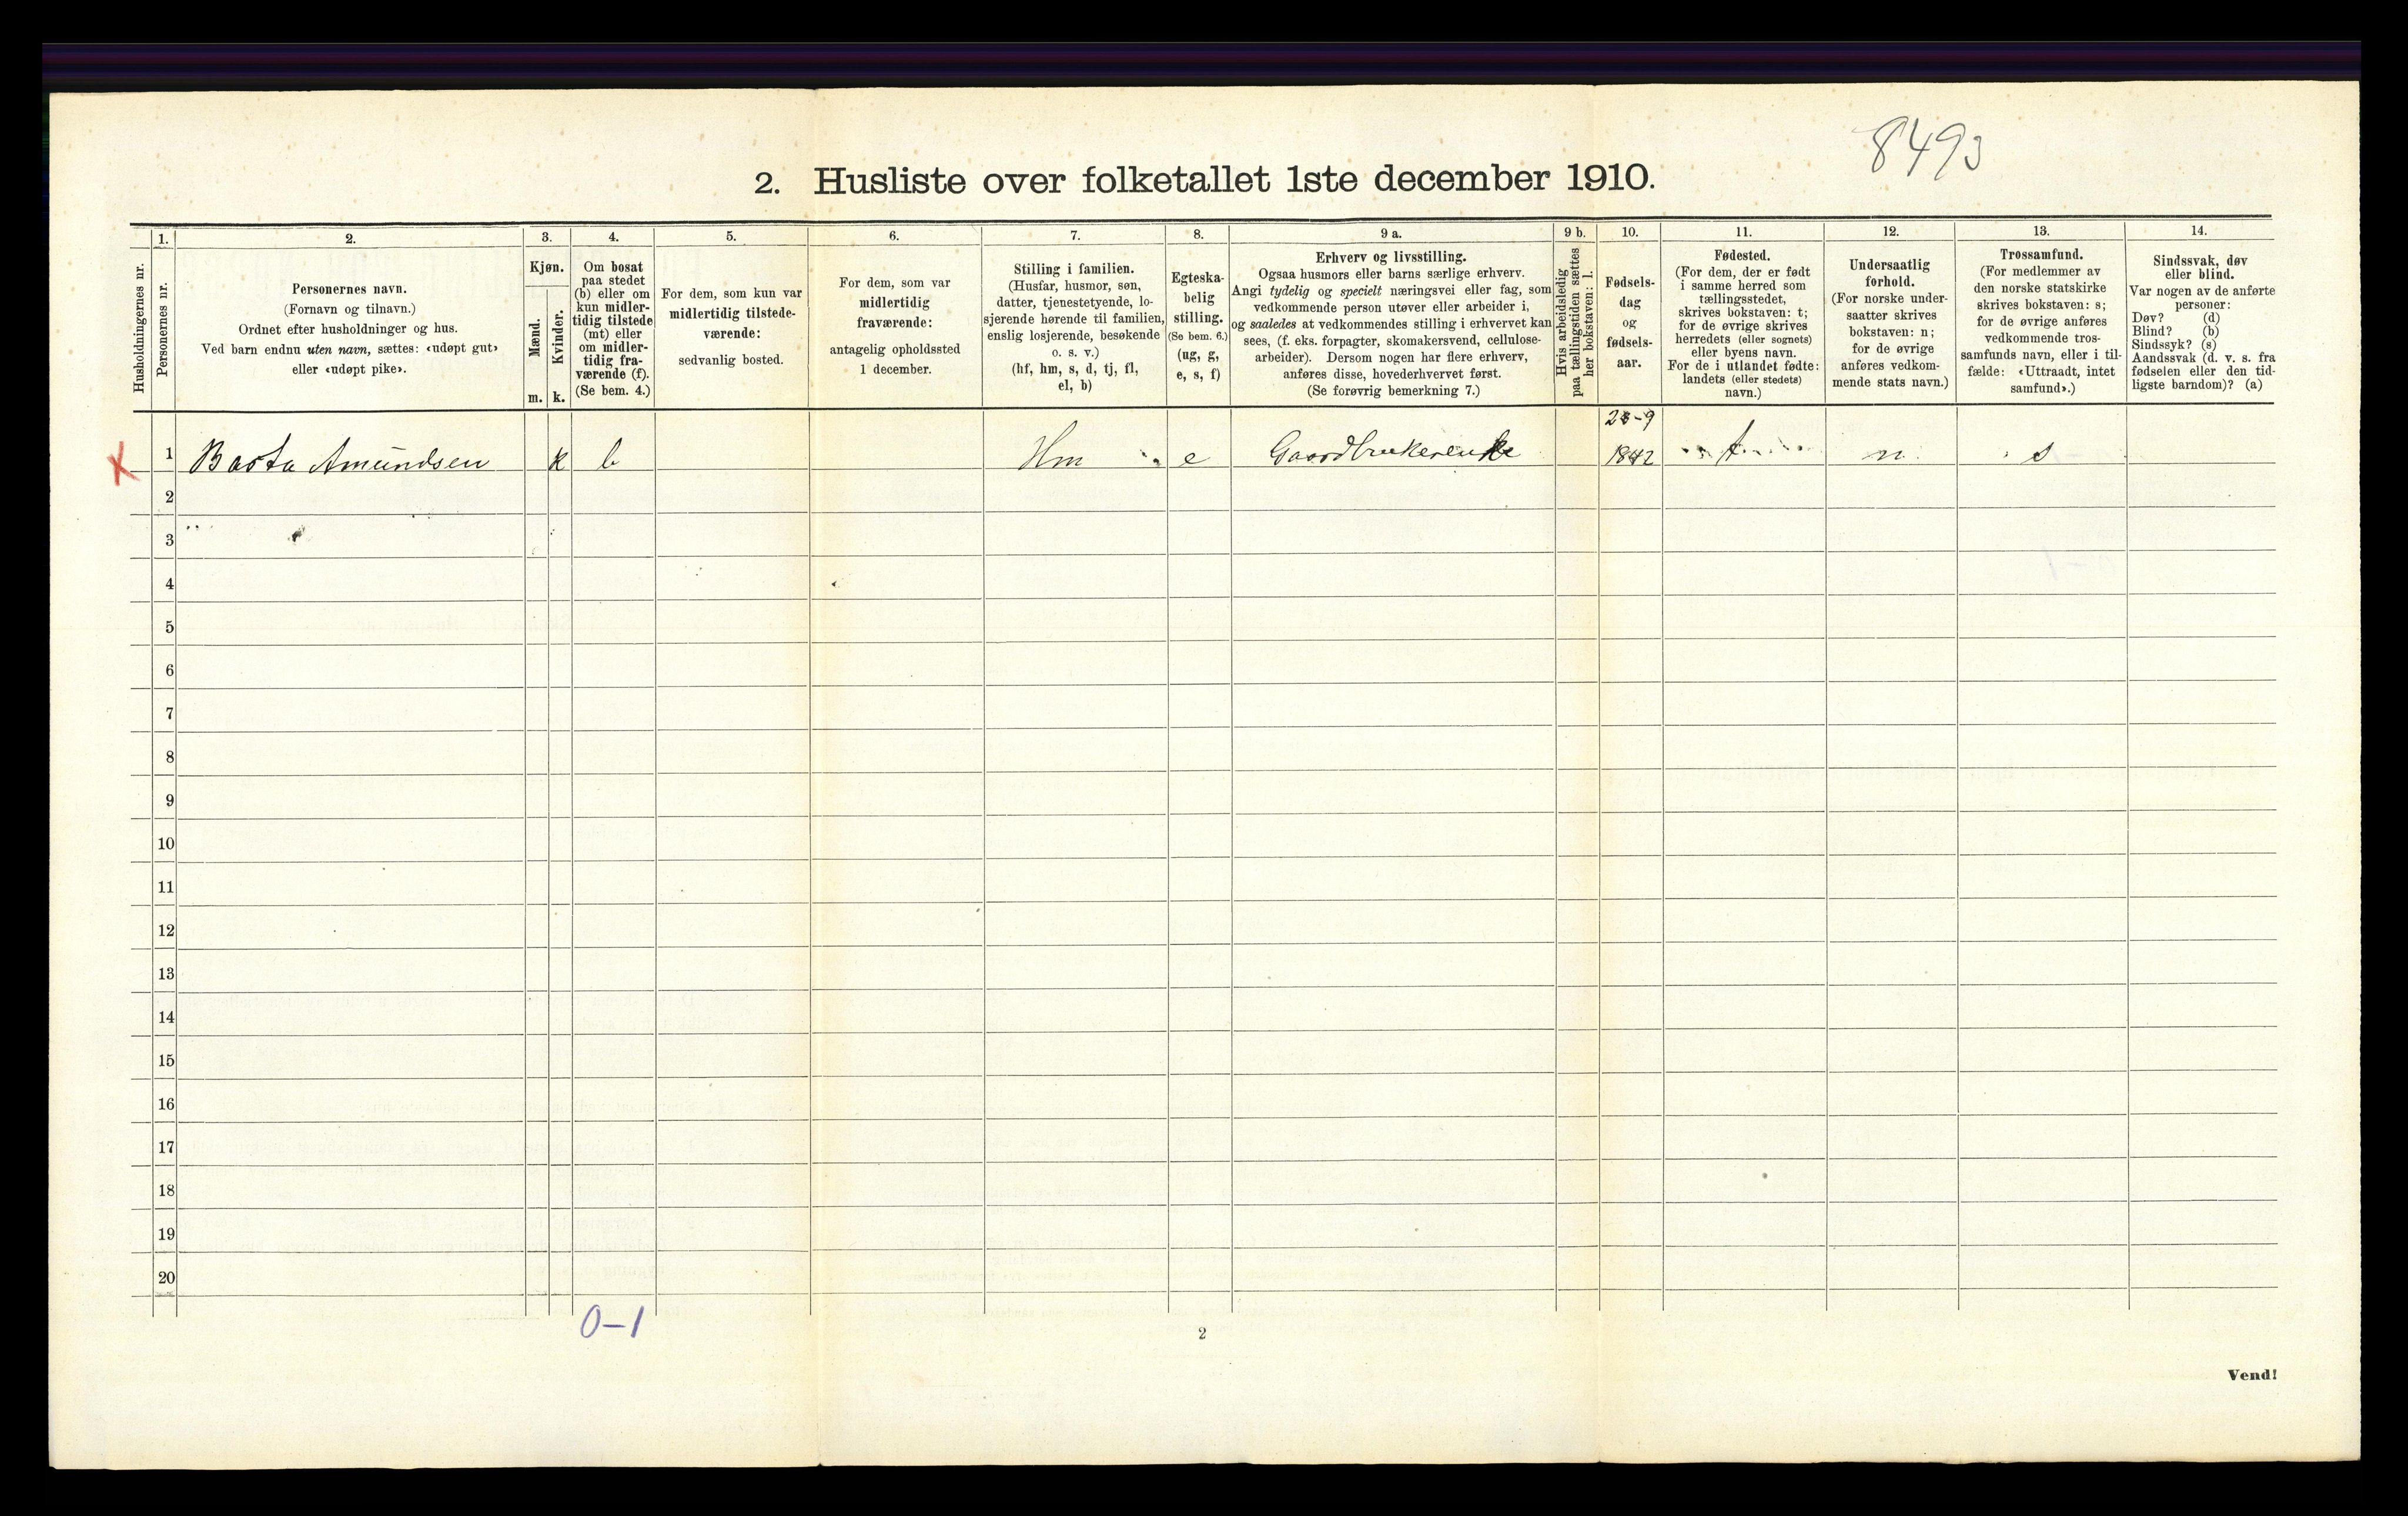 8493
2. Husliste over folketallet 1ste december 1910.
1. 2. 3. 4. 5. 6. 7. 8. 9 a. 9 b. 10. 11. 12. 13. 14.
Husholdningernes nr.
Personernes nr.
Personernes navn.
(Fornavn og tilnavn.)
Ordnet efter husholdninger og hus.
Ved barn endnu uten navn, sættes: «udøpt gut»
eller «udøpt pike».
Kjøn.
Mænd.
Kvinder.
m. k.
Om bosat
paa stedet
(b) eller om
kun midler-
tidig tilstede
(mt) eller
om midler-
tidig fra-
værende (f).
(Se bem. 4.)
For dem, som kun var
midlertidig tilstede-
værende:
sedvanlig bosted.
For dem, som var
midlertidig
fraværende:
antagelig opholdssted
1 december.
Stilling i familien.
(Husfar, husmor, søn,
datter, tjenestetyende, lo-
sjerende hørende til familien,
enslig losjerende, besøkende
o. s. v.)
(hf, hm, s, d, tj, fl,
el, b)
Egteska-
belig
stilling.
(Se bem. 6.)
(ug, g,
e, s, f)
Erhverv og livsstilling.
Ogsaa husmors eller barns særlige erhverv.
Angi tydelig og specielt næringsvei eller fag, som
vedkommende person utøver eller arbeider i,
og saaledes at vedkommendes stilling i erhvervet kan
sees, (f. eks. forpagter, skomakersvend, cellulose-
arbeider). Dersom nogen har flere erhverv,
anføres disse, hovederhvervet først.
(Se forøvrig bemerkning 7.)
Hvis arbeidsledig
paa tællingstiden sættes
her bokstaven: l.
Fødsels-
dag
og
fødsels-
aar.
Fødested.
(For dem, der er født
i samme herred som
tællingsstedet,
skrives bokstaven: t;
for de øvrige skrives
herredets (eller sognets)
eller byens navn.
For de i utlandet fødte:
landets (eller stedets)
navn.)
Undersaatlig
forhold.
(For norske under-
saatter skrives
bokstaven: n;
for de øvrige
anføres vedkom-
mende stats navn.)
Trossamfund.
(For medlemmer av
den norske statskirke
skrives bokstaven: s;
for de øvrige anføres
vedkommende tros-
samfunds navn, eller i til-
fælde: «Uttraadt, intet
samfund».)
Sindssvak, døv
eller blind.
Var nogen av de anførte
personer:
Døv? (d)
Blind? (b)
Sindssyk? (s)
Aandssvak (d. v. s. fra
fødselen eller den tid-
ligste barndom)? (a)
1 Amundsen k b Hm e Gaardbrukerenke 1842 t n s
2
3
4
5
6
7
8
9
10
11
12
13
14
15
16
17
18
19
20
0-1
2
Vend!